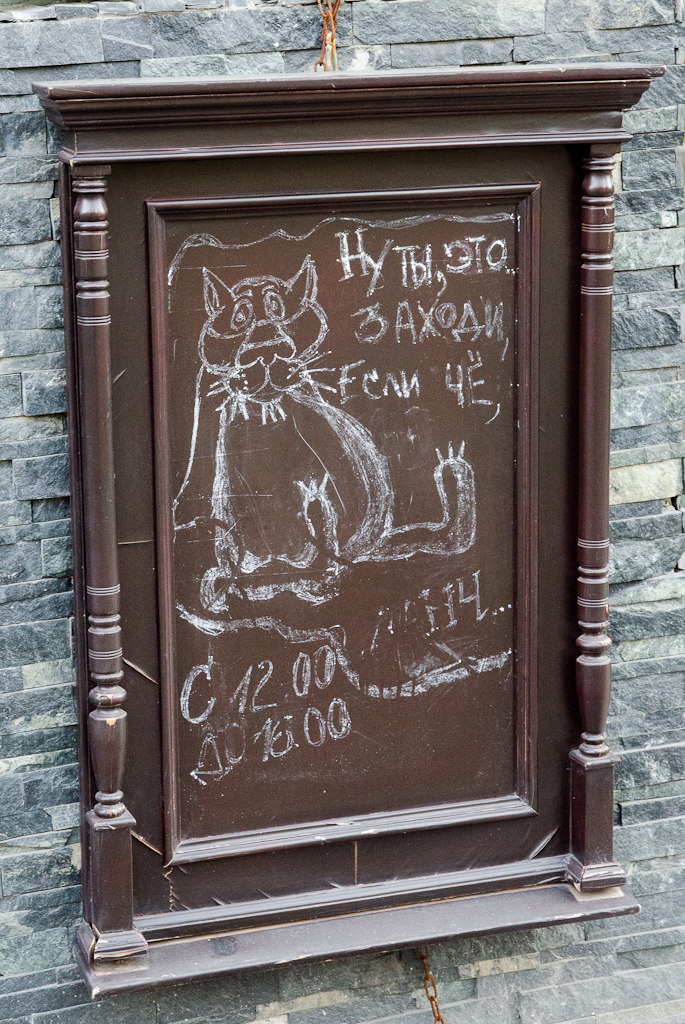 Ну ты, это..
заходи,
Если чё,
ланч...
С 12.00
до 16.00